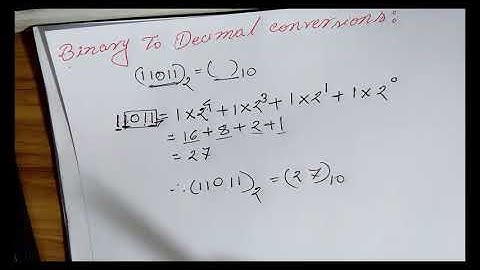 Binary To Decimal conversions:
(11011)₂ = (__)₁₀
11011 = 1×2⁴+1×2³+1×2¹+1×2⁰
= 16+8+2+1
= 27
∴(11011)₂ = (27)₁₀